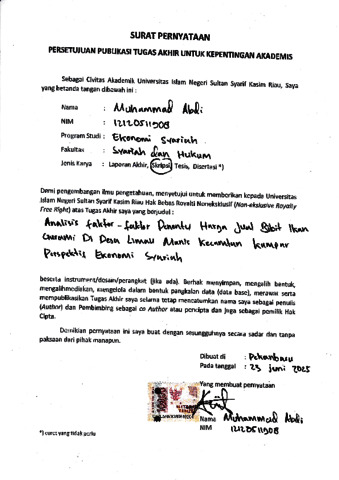 SURAT PERNYATAAN
PERSETUJUAN PUBLIKASI TUGAS AKHIR UNTUK KEPENTINGAN AKADEMIS
Sebagai Civitas Akademik Universitas Islam Negeri Sultan Syarif Kasim Riau, Saya
yang bertanda tangan dibawah ini :
Nama : Muhammad Abdi
NIM : 12120511908
Program Studi : Ekonomi Syariah
Fakultas : Syariah dan Hukum
Jenis Karya : Laporan Akhir, Skripsi, Tesis, Disertasi *)
Demi pengembangan ilmu pengetahuan, menyetujui untuk memberikan kepada Universitas
Islam Negeri Sultan Syarif Kasim Riau Hak Bebas Royalti Noneksklusif (Non-eksklusive Royalty
Free Right) atas Tugas Akhir saya yang berjudul :
Analisis faktor - faktor Penentu Harga Jual Bibit Ikan
Di Desa Limau Manis Kecamatan Kampar
Perspektif Ekonomi Syariah
beserta instrument/desain/perangkat (jika ada). Berhak menyimpan, mengalih bentuk,
mengalihmediakan, mengelola dalam bentuk pangkalan data (data base), merawat serta
mempublikasikan Tugas Akhir saya selama tetap mencatumkan nama saya sebagai penulis
(Author) dan Pembimbing sebagai co Author atau pencipta dan juga sebagai pemilik Hak
Cipta.
Demikian pernyataan ini saya buat dengan sesungguhnya secara sadar dan tanpa
paksaan dari pihak manapun.
Dibuat di : Pekanbaru
Pada tanggal : 23 juni 2025
Yang membuat pernyataan
Nama Muhammad Abdi
NIM 12120511908
*) coret yang tidak perlu